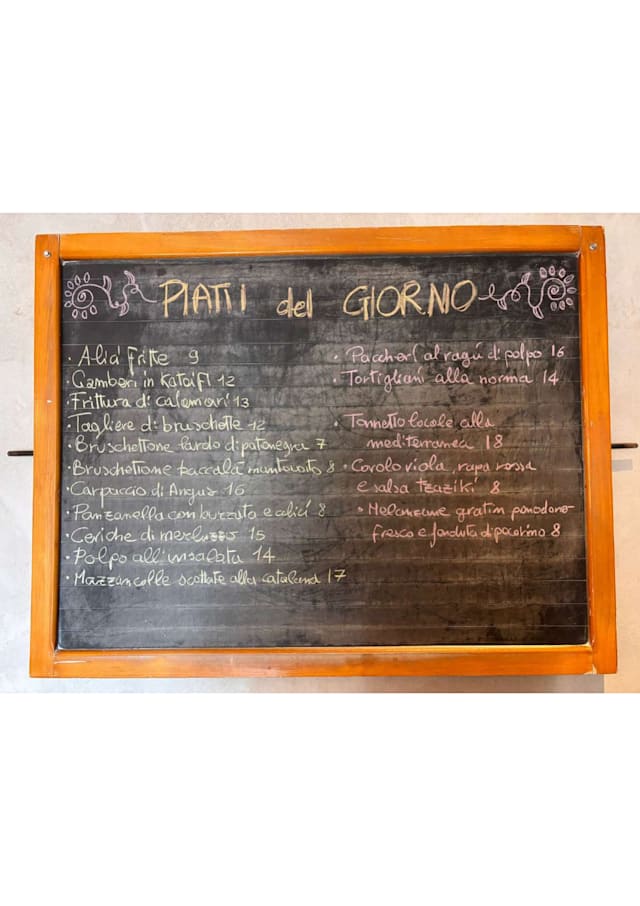 PIATTI del GIORNO
· Alici fritte 9
· Gamberi in Kataifi 12
· Frittura di calamari 13
· Tagliere di bruschette 12
· Bruschettone lardo di patanegra 7
· Bruschettone baccalà mantecato 8
· Carpaccio di Angus 16
· Panzanella con burrata e alici 8
· Ceviche di merluzzo 15
· Polpo all'insalata 14
· Mazzancolle scottate alla catalana 17
· Paccheri al ragù di polpo 16
· Tortiglioni alla norma 14
· Tonnetto locale alla
mediterranea 18
· Cavolo viola, rapa rossa
e salsa tzaziki 8
· Melanzane gratin pomodoro
fresco e fonduta di pecorino 8